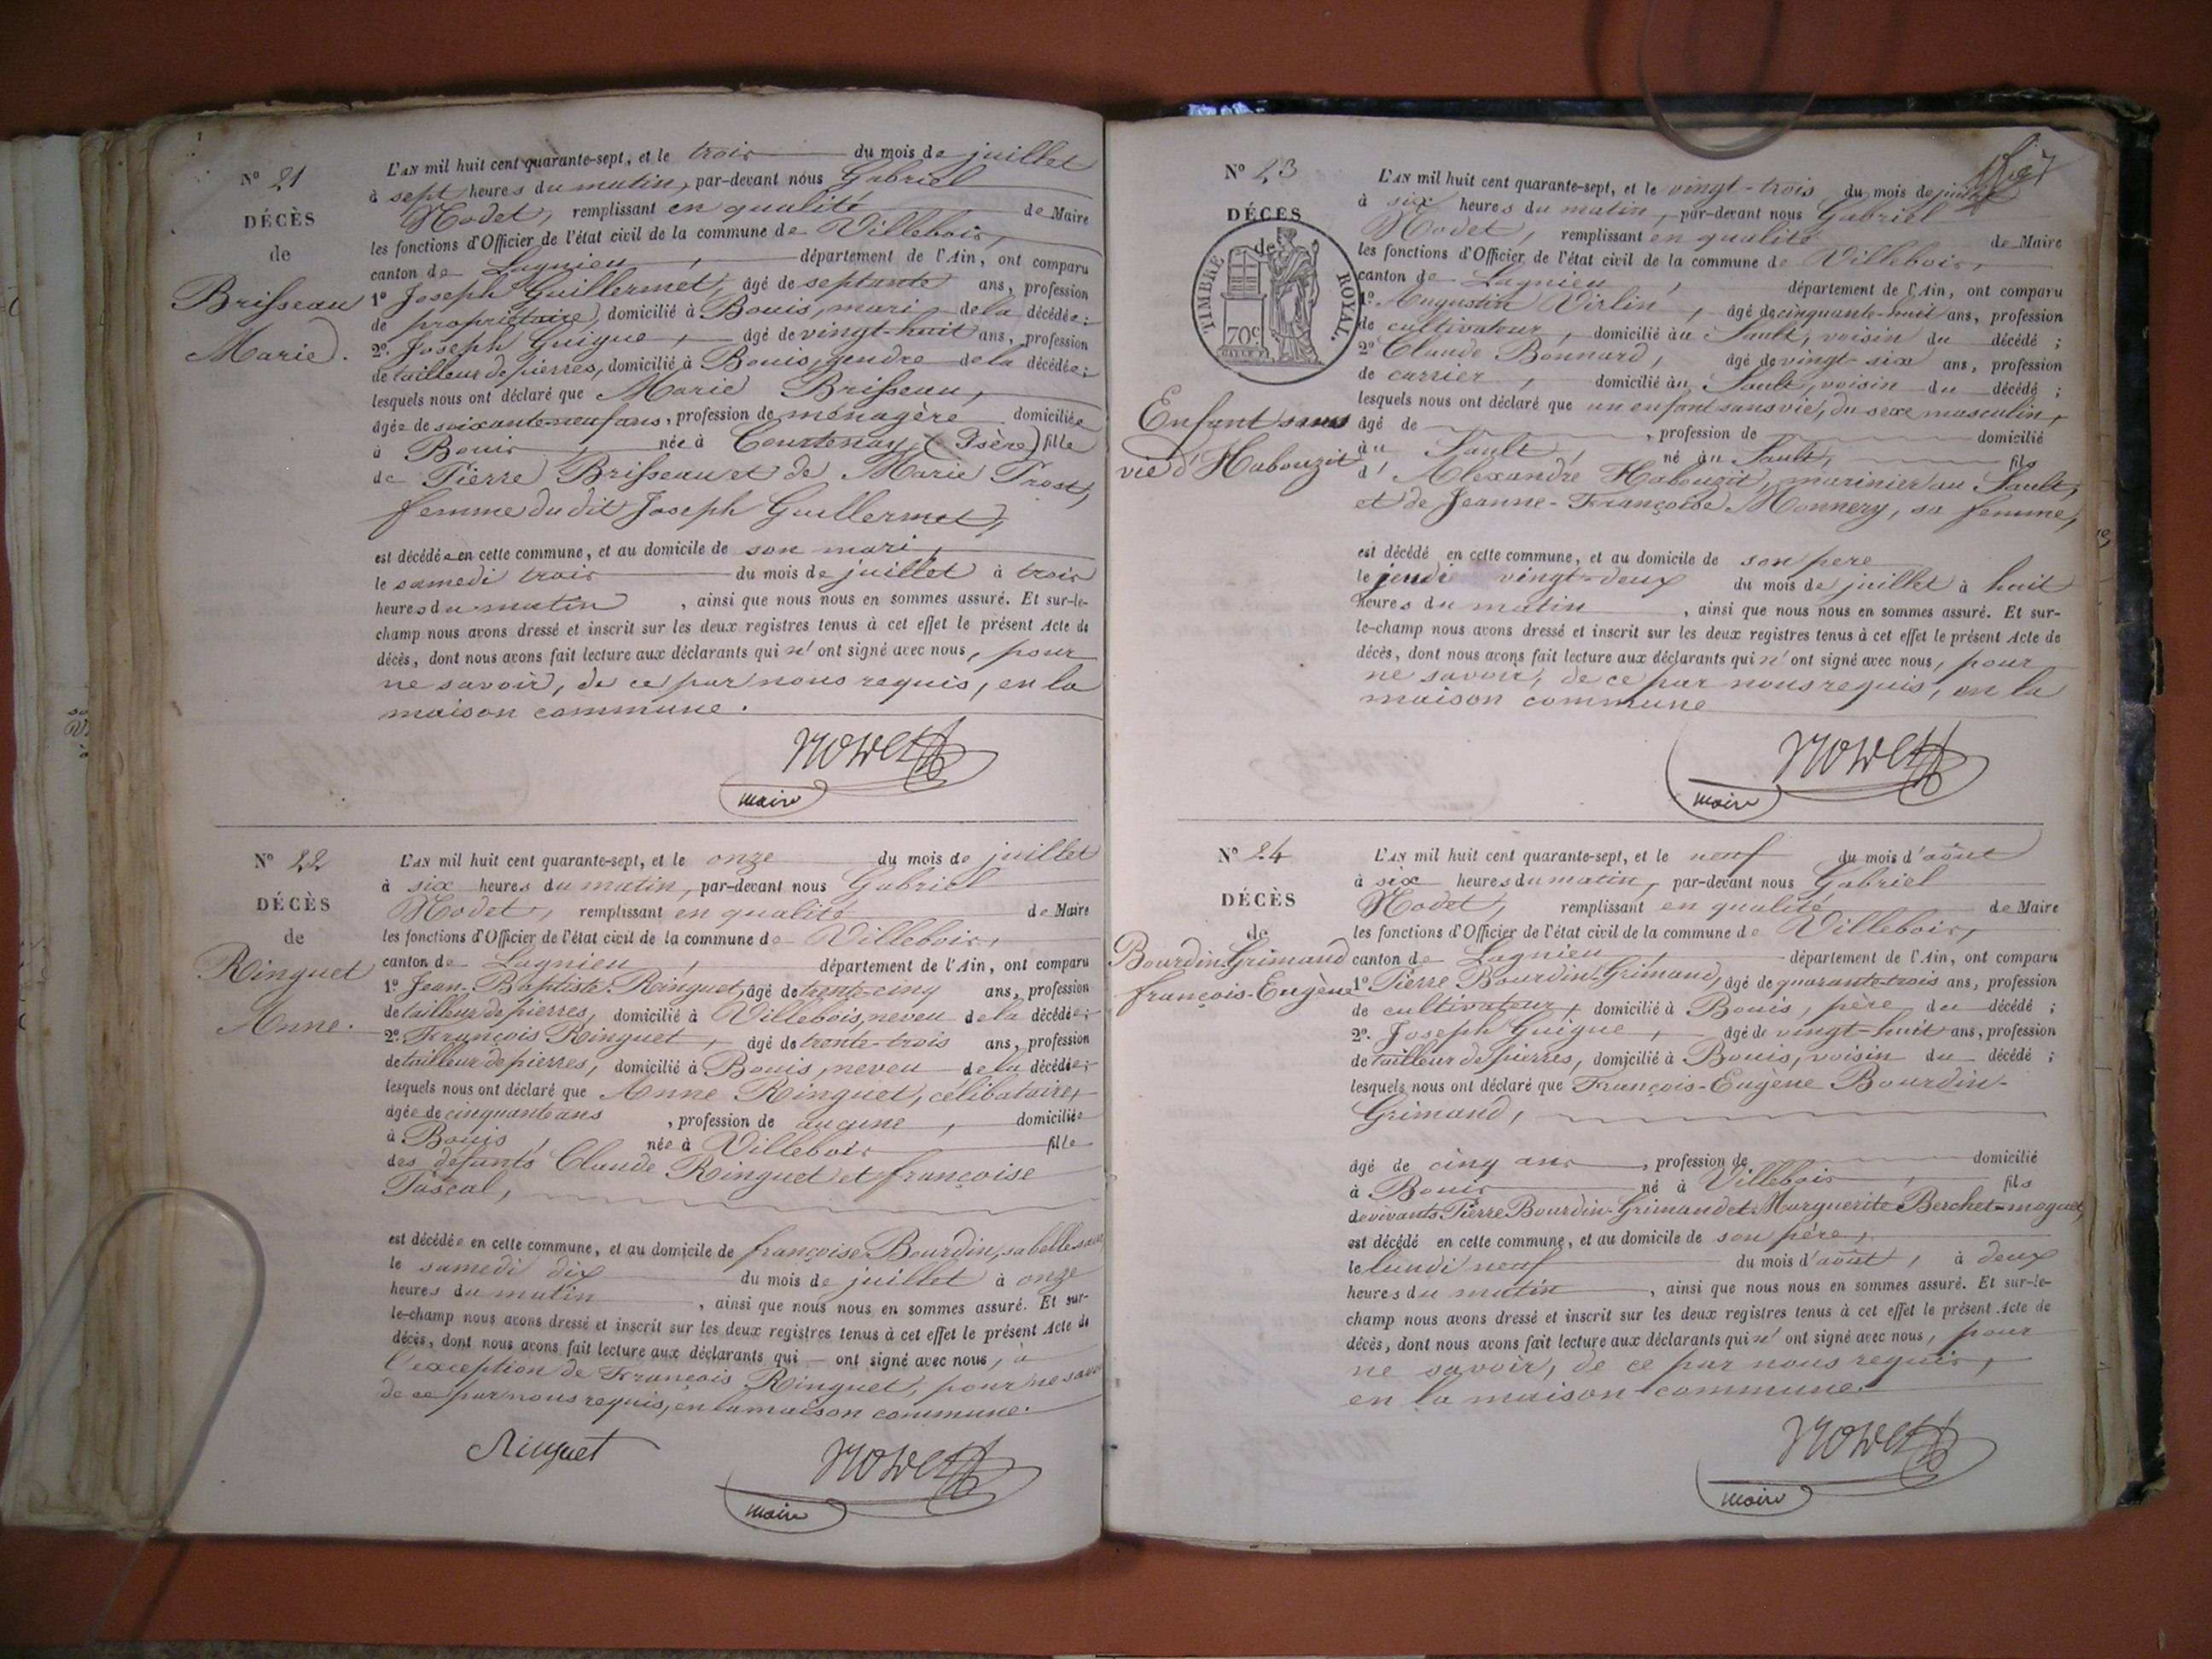 N° 21
DÉCÈS
de
Brisseau
Marie.
L'AN mil huit cent quarante-sept, et le trois du mois de juillet
à sept heures du matin, par-devant nous Gabriel
Nodet, remplissant en qualité de Maire
les fonctions d'Officier de l'état civil de la commune de Villebois,
canton de Lagnieu, département de l'Ain, ont comparu
1° Joseph Guillermet, âgé de septante ans, profession
de propriétaire, domicilié à Bouis, mari de la décédée;
2°. Joseph Guigue, âgé de vingt-huit ans, profession
de tailleur de pierres, domicilié à Bouis, gendre de la décédée;
lesquels nous ont déclaré que Marie Brisseau,
âgée de soixante-neuf ans, profession de ménagère domiciliée
à Bouis, née à Courtenay, (Isère) fille
de Pierre Brisseau et de Marie Trost,
femme du dit Joseph Guillermet,
est décédée en cette commune, et au domicile de son mari,
le samedi trois du mois de juillet à trois
heures du matin, ainsi que nous nous en sommes assuré. Et sur-le-
champ nous avons dressé et inscrit sur les deux registres tenus à cet effet le présent Acte de
décès, dont nous avons fait lecture aux déclarants qui n'ont signé avec nous, pour
ne savoir, de ce par nous requis, en la
maison commune.
Nodet
maire
N° 22
DÉCÈS
de
Ringuet
Anne.
L'AN mil huit cent quarante-sept, et le onze du mois de juillet
à six heures du matin, par-devant nous Gabriel
Nodet, remplissant en qualité de Maire
les fonctions d'Officier de l'état civil de la commune de Villebois,
canton de Lagnieu, département de l'Ain, ont comparu
1° Jean-Baptiste Ringuet, âgé de trente-cinq ans, profession
de tailleur de pierres, domicilié à Villebois, neveu de la décédée;
2°. François Ringuet, âgé de trente-trois ans, profession
de tailleur de pierres, domicilié à Bouis, neveu de la décédée;
lesquels nous ont déclaré que Anne Ringuet, célibataire,
âgée de cinquante ans, profession de aucune, domiciliée
à Bouis, née à Villebois fille
des défunts Claude Ringuet et françoise
Pascal,
est décédée en cette commune, et au domicile de françoise Bourdin, sa belle sœur
le samedi dix du mois de juillet à onze
heures du matin, ainsi que nous nous en sommes assuré. Et sur-
le-champ nous avons dressé et inscrit sur les deux registres tenus à cet effet le présent Acte de
décès, dont nous avons fait lecture aux déclarants qui — ont signé avec nous, à
l'exception de François Ringuet, pour ne savoir
de ce par nous requis, en la maison commune.
Ringuet
Nodet
maire
N° 23
DÉCÈS
de
TIMBRE ROYAL.
70c
Enfant sans
vie d'Habouzit
L'AN mil huit cent quarante-sept, et le vingt-trois du mois de juillet
à six heures du matin, par-devant nous Gabriel
Nodet, remplissant en qualité de Maire
les fonctions d'Officier de l'état civil de la commune de Villebois,
canton de Lagnieu, département de l'Ain, ont comparu
1°. Augustin Virlin, âgé de cinquante-huit ans, profession
de cultivateur, domicilié au Sault, voisin du décédé;
2° Claude Bonnard, âgé de vingt-six ans, profession
de carrier, domicilié au Sault, voisin du décédé;
lesquels nous ont déclaré que un enfant sans vie, du sexe masculin,
âgé de, profession de domicilié
au Sault, né au Sault, fils
d'Alexandre Habouzit, marinier au Sault,
et de Jeanne-Françoise Monnery, sa femme,
est décédé en cette commune, et au domicile de son pere
le jeudi vingt-deux du mois de juillet à huit
heures du matin, ainsi que nous nous en sommes assuré. Et sur-
le-champ nous avons dressé et inscrit sur les deux registres tenus à cet effet le présent Acte de
décès, dont nous avons fait lecture aux déclarants qui n'ont signé avec nous, pour
ne savoir, de ce par nous requis, en la
maison commune
Nodet
maire
N° 24
DÉCÈS
de
Bourdin-Grimaud
françois-Eugène
L'AN mil huit cent quarante-sept, et le neuf du mois d'août
à six heures du matin, par-devant nous Gabriel
Nodet, remplissant en qualité de Maire
les fonctions d'Officier de l'état civil de la commune de Villebois,
canton de Lagnieu, département de l'Ain, ont comparu
1° Pierre Bourdin-Grimaud, âgé de quarante-trois ans, profession
de cultivateur, domicilié à Bouis, père du décédé;
2°. Joseph Guigue, âgé de vingt-huit ans, profession
de tailleur de pierres, domicilié à Bouis, voisin du décédé;
lesquels nous ont déclaré que François-Eugène Bourdin-
Grimaud,
âgé de cinq ans, profession de domicilié
à Bouis né à Villebois, fils
de vivants Pierre Bourdin-Grimaud et Marguerite Berchet-moguet,
est décédé en cette commune, et au domicile de son père,
le lundi neuf du mois d'août, à deux
heures du matin, ainsi que nous nous en sommes assuré. Et sur-le-
champ nous avons dressé et inscrit sur les deux registres tenus à cet effet le présent Acte de
décès, dont nous avons fait lecture aux déclarants qui n'ont signé avec nous, pour
ne savoir, de ce par nous requis,
en la maison commune.
Nodet
maire